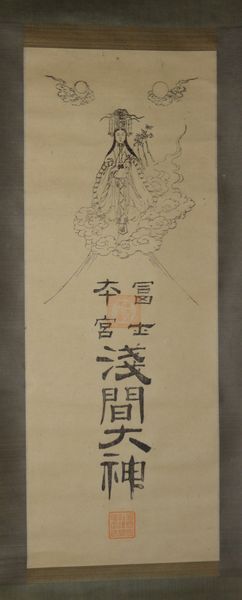 冨士
本宮
淺間大神